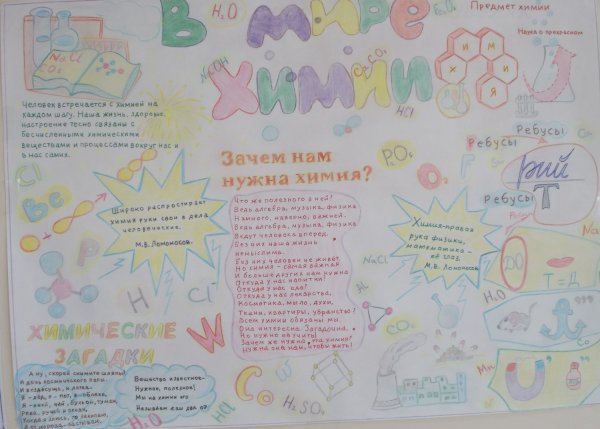 В мире
химии
H₂O
Предмет химии
Наука о прекрасном
NaCl
CO₂
ХИМИЯ
HCl
Человек встречается с химией на
каждом шагу. Наша жизнь, здоровье,
настроение тесно связаны с
бесчисленными химическими
веществами и процессами вокруг нас и
в нас самих.
Зачем нам
нужна химия?
Что же полезного в ней?
Ведь алгебра, музыка, физика
Намного, наверно, важней.
Ведь алгебра, музыка, физика
Ведут человека вперёд.
Без них наша жизнь
немыслима.
Без них человек не живёт.
Но химия - самая важная
И больше других нам нужна
Откуда у нас напитки?
Откуда у нас еда?
Откуда у нас лекарства,
Косметика, мыло, духи,
Ткани, квартиры, убранство?
Всем химии обязаны мы
Она интересна. Загадочна,
Но нужно её учить!
Зачем же нужна эта химия?
Нужна она нам, чтобы жить!
Широко распростирает
химия руки свои в дела
человеческие.
М.В. Ломоносов.
Химия-правая
рука физики,
математика -
её глаз.
М.В. Ломоносов
Ребусы
Ребусы
Ребусы
рий
Т
ДО
Т=Д
Cl
Be
P
H
Cl
W
O₂
F
Na
NaCl
Al
CO₂
H₂O
Mn
Co
Cu
H₂O
HCl
H₂SO₄
ХИМИЧЕСКИЕ
ЗАГАДКИ
А ну, скорей снимите шляпы!
Я дочь космического папы.
И вездесуща, и легка.
Я - лёд, я - пот, я - облака,
Я - иней, чай, бульон, туман,
Река, ручей и океан,
Когда я злюсь, то закипаю,
Вещество известное-
Нужное, полезное!
Мы на химии его
Называем аш два о?